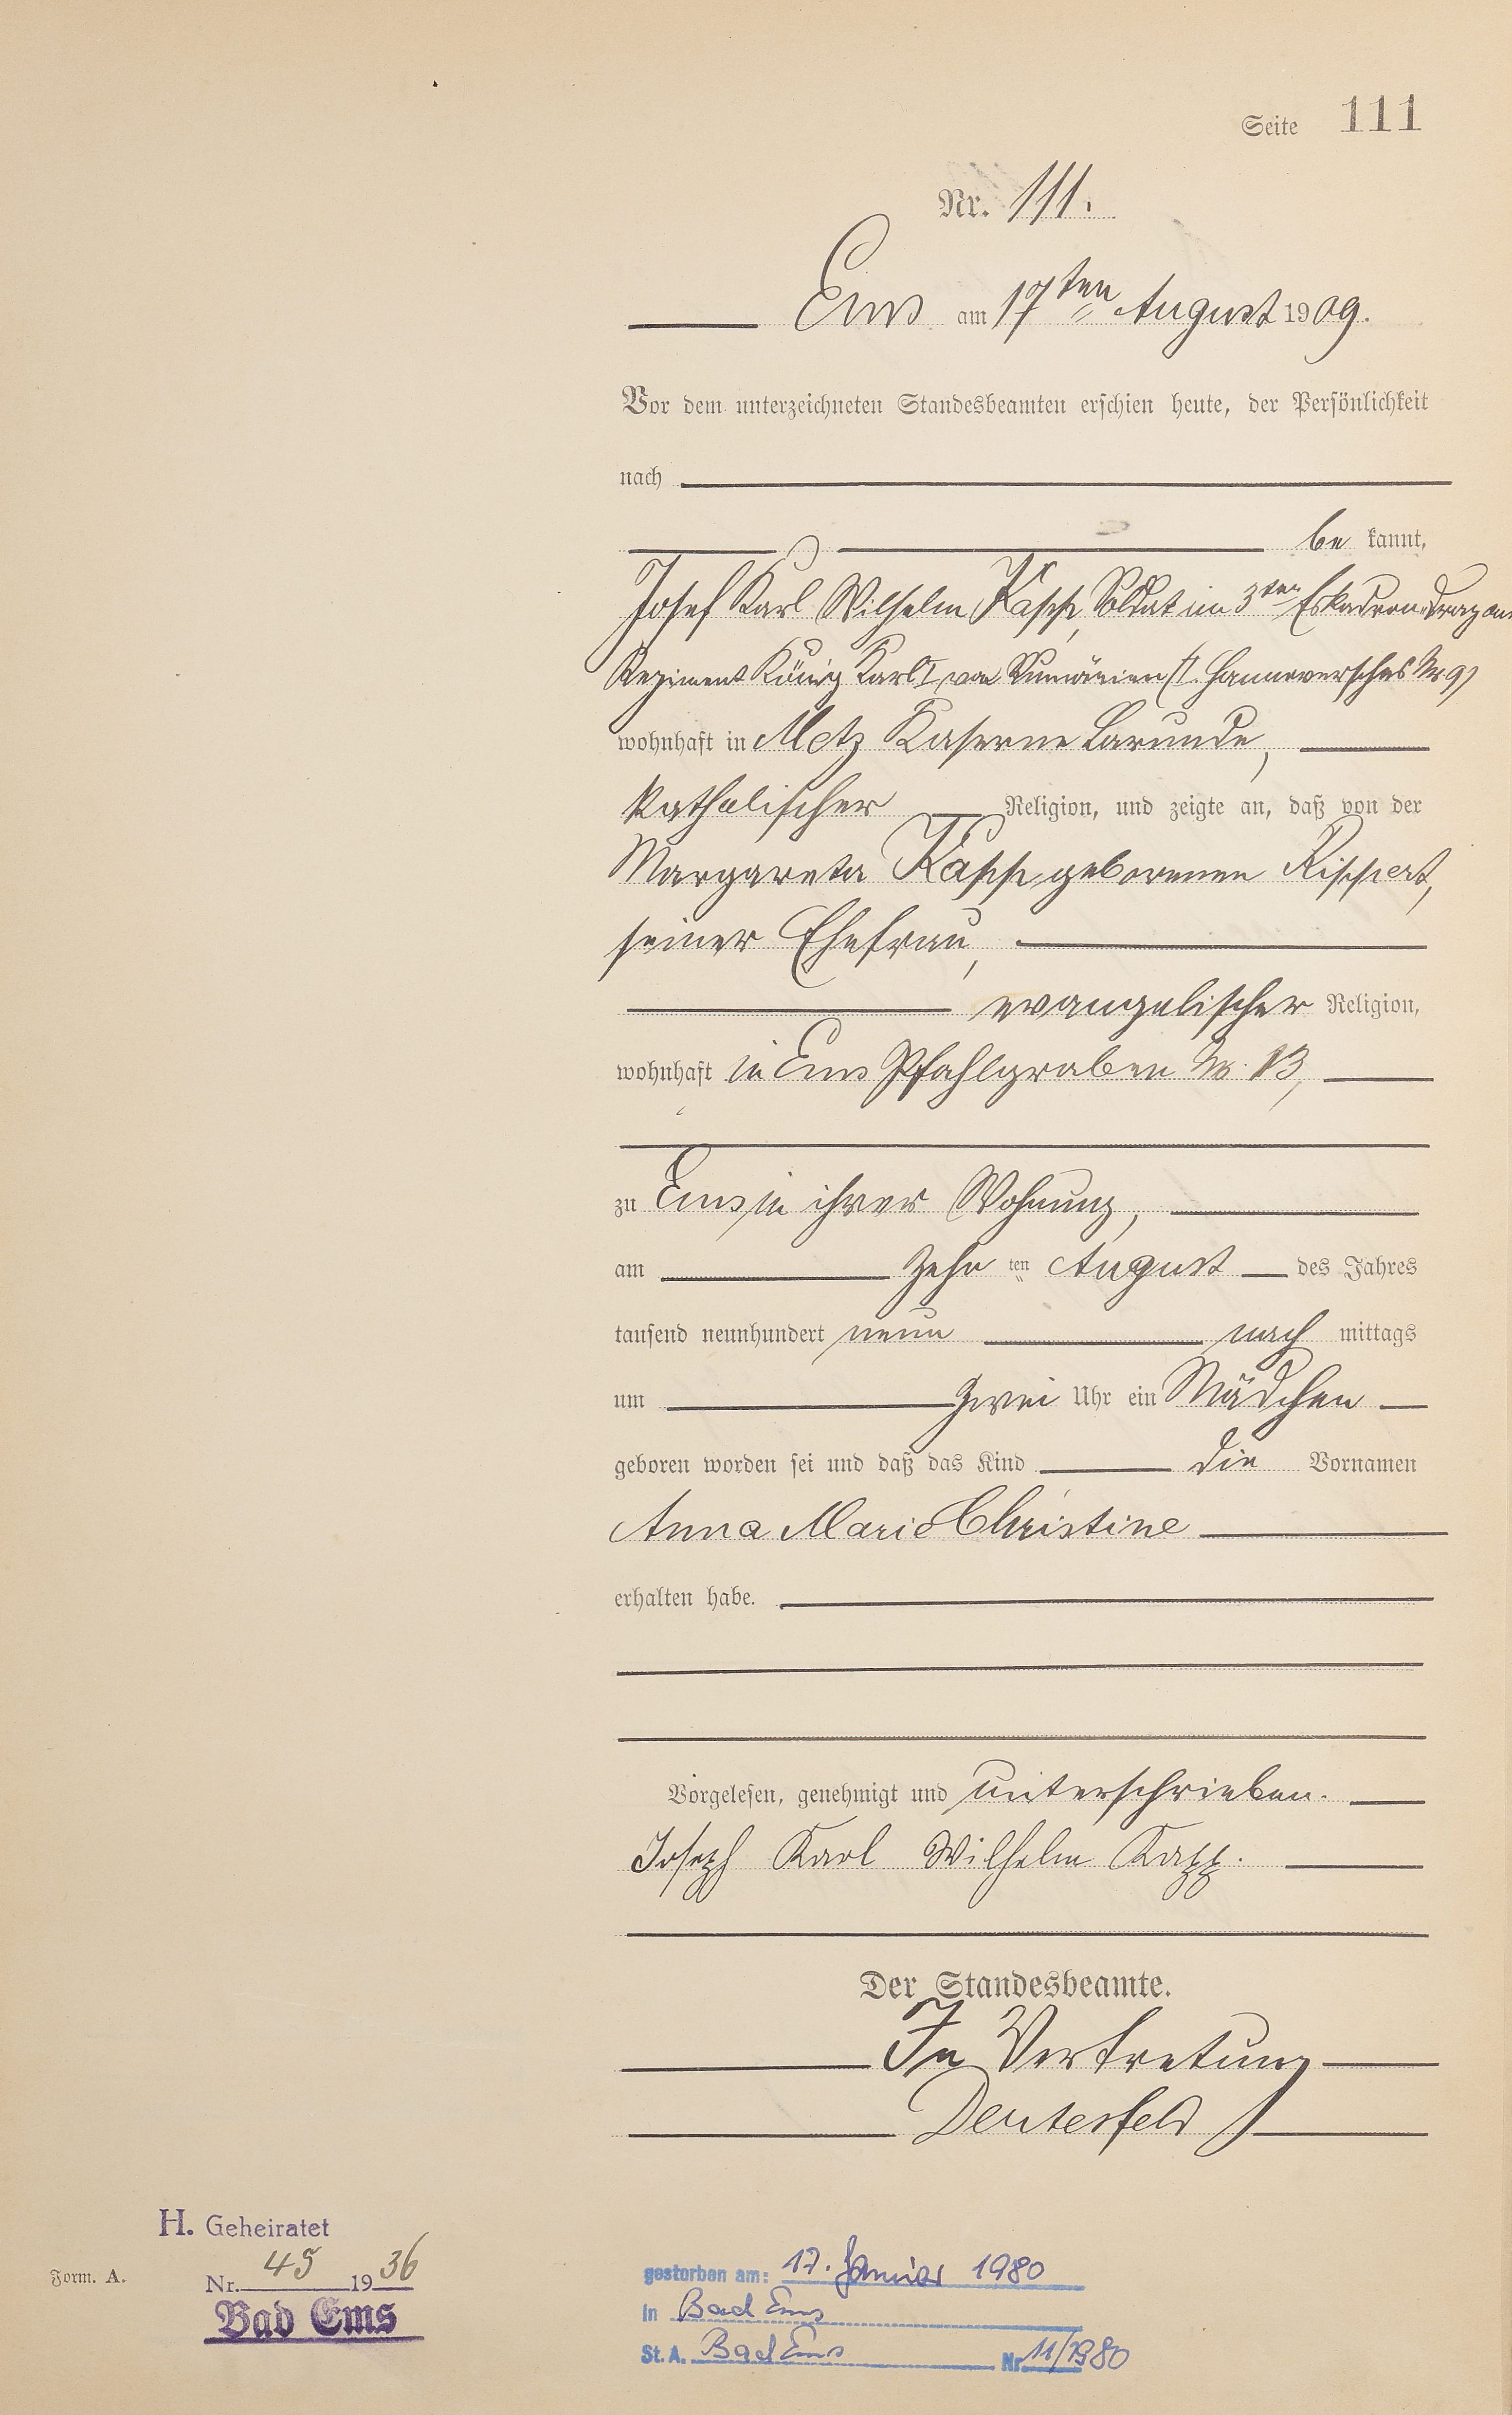 Seite 111
Nr. 111.
Ems am 17ten August 1909.
Vor dem unterzeichneten Standesbeamten erschien heute, der Persönlichkeit
nach
be kannt,
Josef Karl Wilhelm Kapp, Soldat im 3ten Eskadron Dragoner
Regiment König Karl I von Rumänien (1. Hannoversches Nr 9)
wohnhaft in Metz Kaserne
katholischer Religion, und zeigte an, daß von der
Margareta Kapp geborenen Rippert,
seiner Ehefrau,
evangelischer Religion,
wohnhaft in Ems Pfahlgraben Nr. 13,
zu Ems in ihrer Wohnung,
am zehn ten August des Jahres
tausend neunhundert neun nach mittags
um zwei Uhr ein Mädchen
geboren worden sei und daß das Kind die Vornamen
Anna Maria Christine
erhalten habe.
Vorgelesen, genehmigt und unterschrieben.
Joseph Karl Wilhelm Kapp.
Der Standesbeamte.
In Vertretung
H. Geheiratet
Nr. 45 1936
Bad Ems
Form. A.
gestorben am: 17. Januar 1980
in Bad Ems
St. A. Bad Ems Nr. 11/1980